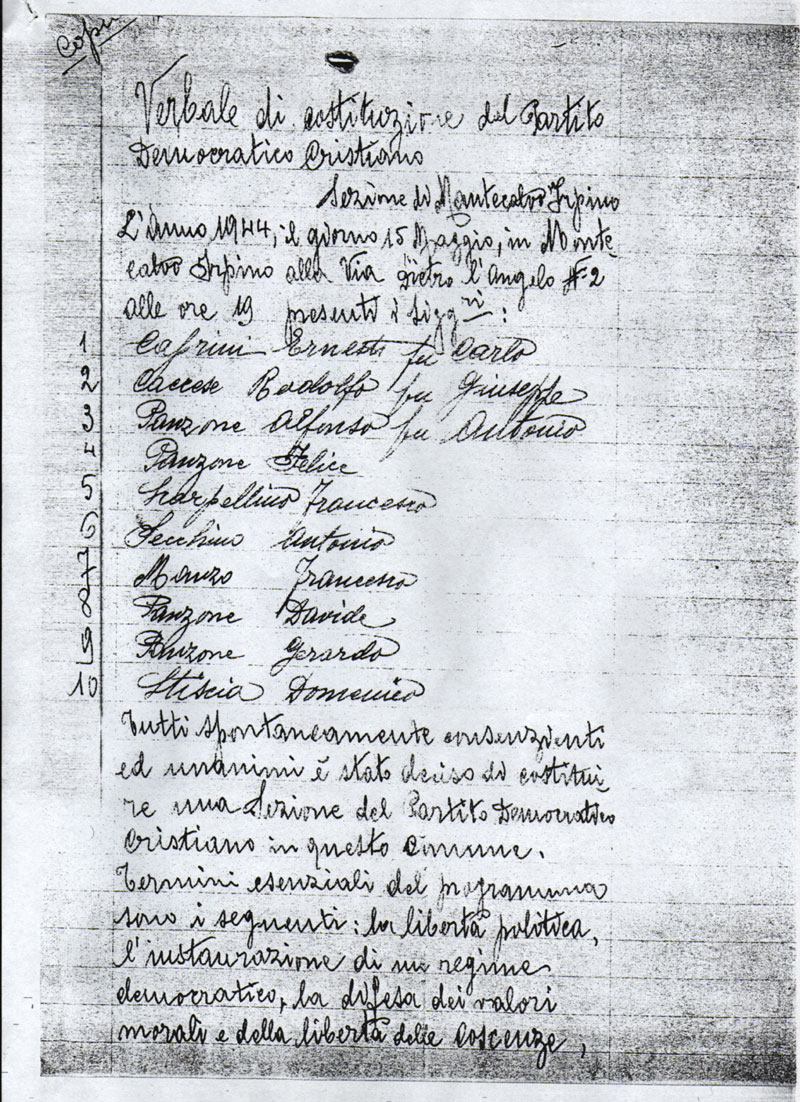 Copia
Verbale di costituzione del Partito
Democratico Cristiano
Sezione di Montecalvo Irpino
L'Anno 1944, il giorno 15 Maggio, in Monte
calvo Irpino alla Via Pietro l'Angelo N. 2
alle ore 19 presenti i Sigg.ri:
1 Cafrini Ernesto fu Carlo
2 Caccese Rodolfo fu Giuseppe
3 Panzone Alfonso fu Antonio
4 Panzone Felice
5 Scarpellino Francesco
6 Pecchino Antonio
7 Manzo Francesco
8 Panzone Davide
9 Panzone Gerardo
10 Stiscia Domenico
Tutti spontaneamente consenzienti
ed unanimi è stato deciso di costitui
re una Sezione del Partito Democratico
Cristiano in questo Comune.
Termini esenziali del programma
sono i seguenti: la libertà politica,
l'instaurazione di un regime
democratico, la difesa dei valori
morali e della libertà delle Coscenze,